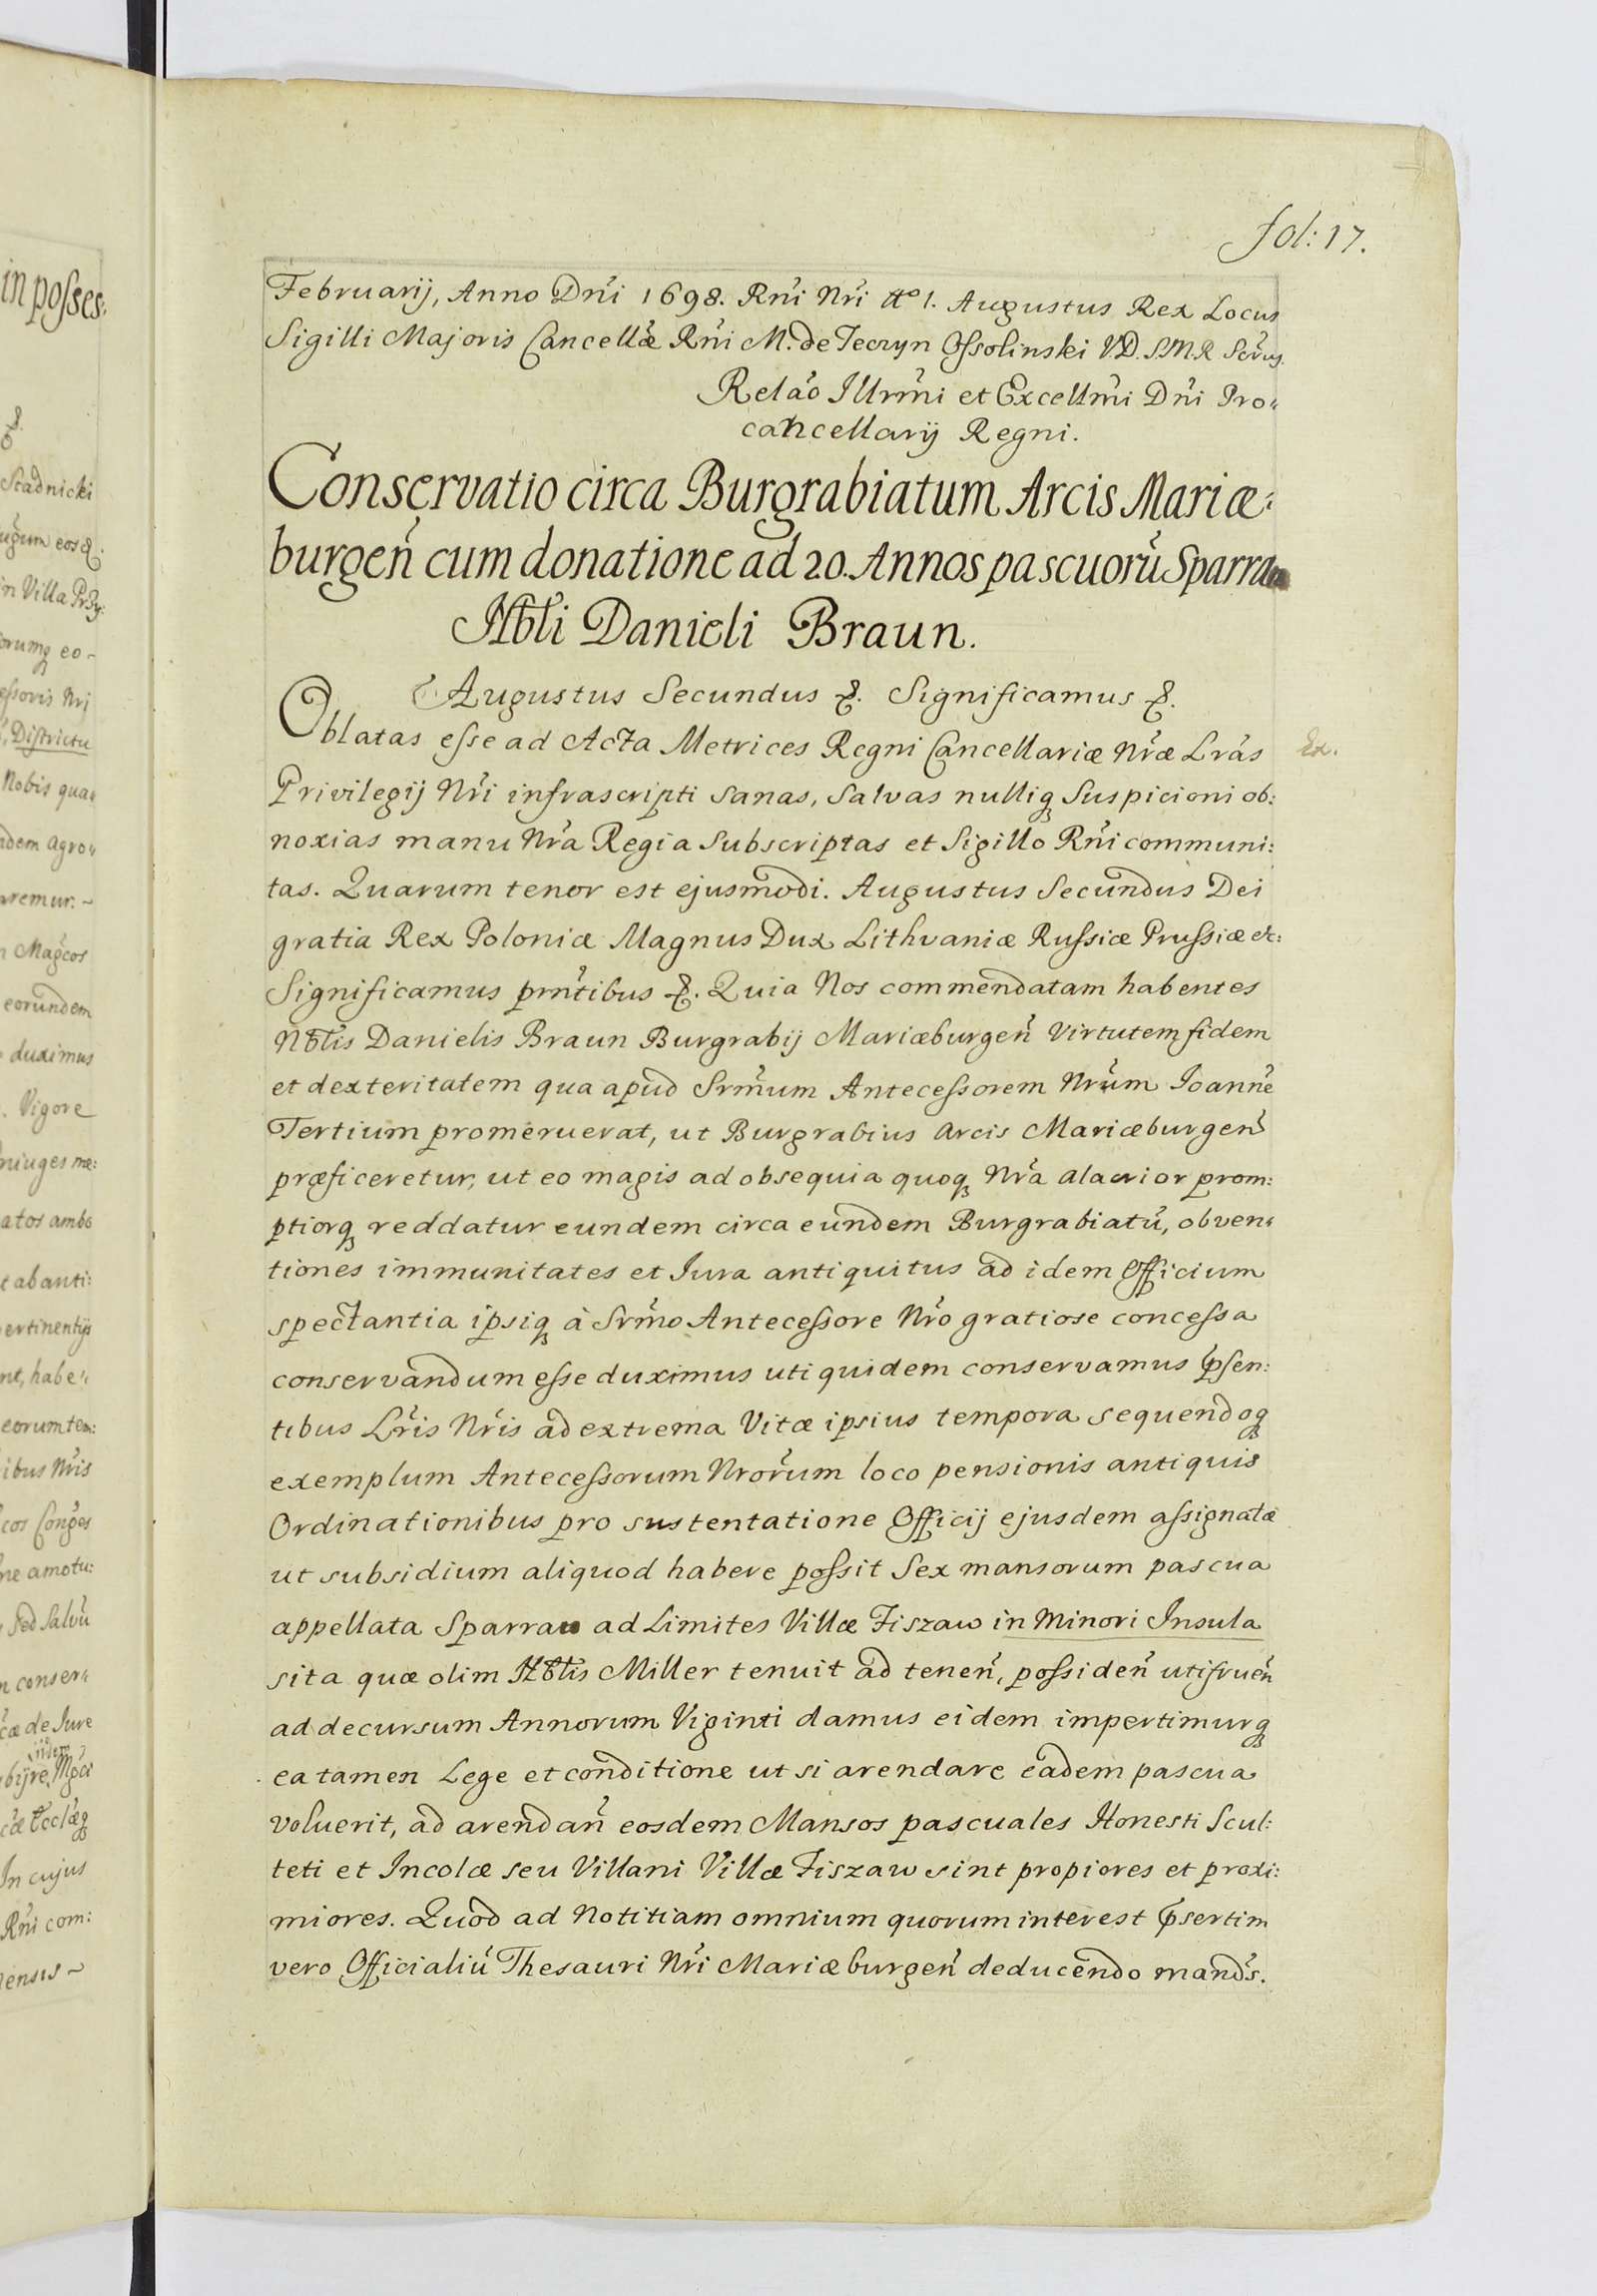 fol: 17.
Februarij, Anno Dñi 1698. Rñi Nri Ao 1. Augustus Rex Locus
Sigilli Majoris Cancellæ Rñi M. de Teczyn Oſsolinski VD. S.M.R Scrus.
Relao Illrmi et Excellmi Dñi Pro„
cancellarij Regni.
Conservatio circa Burgrabiatum Arcis Mariæ:
burgeñ cum donatione ad 20. Annos pascuorũ Sparrau
Nbli Danieli Braun.
Augustus Secundus &. Significamus &.
Oblatas eſse ad Acta Metrices Regni Cancellariæ Nræ Lras
Ex.
Privilegij Nri infrascripti sanas, salvas nulliq suspicioni ob:
noxias manu Nra Regia Subscriptas et Sigillo Rñi communi:
tas. Quarum tenor est ejusmodi. Augustus Secundus Dei
gratia Rex Poloniæ Magnus Dux Lithvaniæ Ruſsiæ Pruſsiæ etc:
Significamus prntibus &. Quia Nos commendatam habentes
Nblis Danielis Braun Burgrabij Mariæburgeñ Virtutem fidem
et dexteritatem qua apud Srmum Anteceſsorem Nrum Joanne
Tertium promeruerat, ut Burgrabius Arcis Mariæburgeñ
præficeretur, ut eo magis ad obsequia quoq Nra alacrior prom:
ptiorq reddatur eundem circa eundem Burgrabiatũ, obven„
tiones immunitates et Jura antiquitus ad idem Officium
spectantia ipsiq à Srmo Anteceſsore Nro gratiose conceſsa
conservandum eſse duximus uti quidem conservamus pſen:
tibus Lris Nris ad extrema Vitæ ipsius tempora sequendoq
exemplum Anteceſsorum Nrorum loco pensionis antiquis
Ordinationibus pro sustentatione Officij ejusdem aſsignatæ
ut subsidium aliquod habere poſsit Sex mansorum pascua
appellata Sparrau ad Limites Villæ Fiszaw in Minori Insula
sita quæ olim Nblis Miller tenuit ad teneñ, poſsideñ utifrueñ
ad decursum Annorum Viginti damus eidem impertimurq
ea tamen Lege et conditione ut si arendare eadem pascua
voluerit, ad arendañ eosdem Mansos pascuales Honesti Scul:
teti et Incolæ seu Villani Villæ Fiszaw sint propiores et proxi:
miores. Quod ad Notitiam omnium quorum interest pſertim
vero Officialiũ Thesauri Nri Mariæburgeñ deducendo mands.